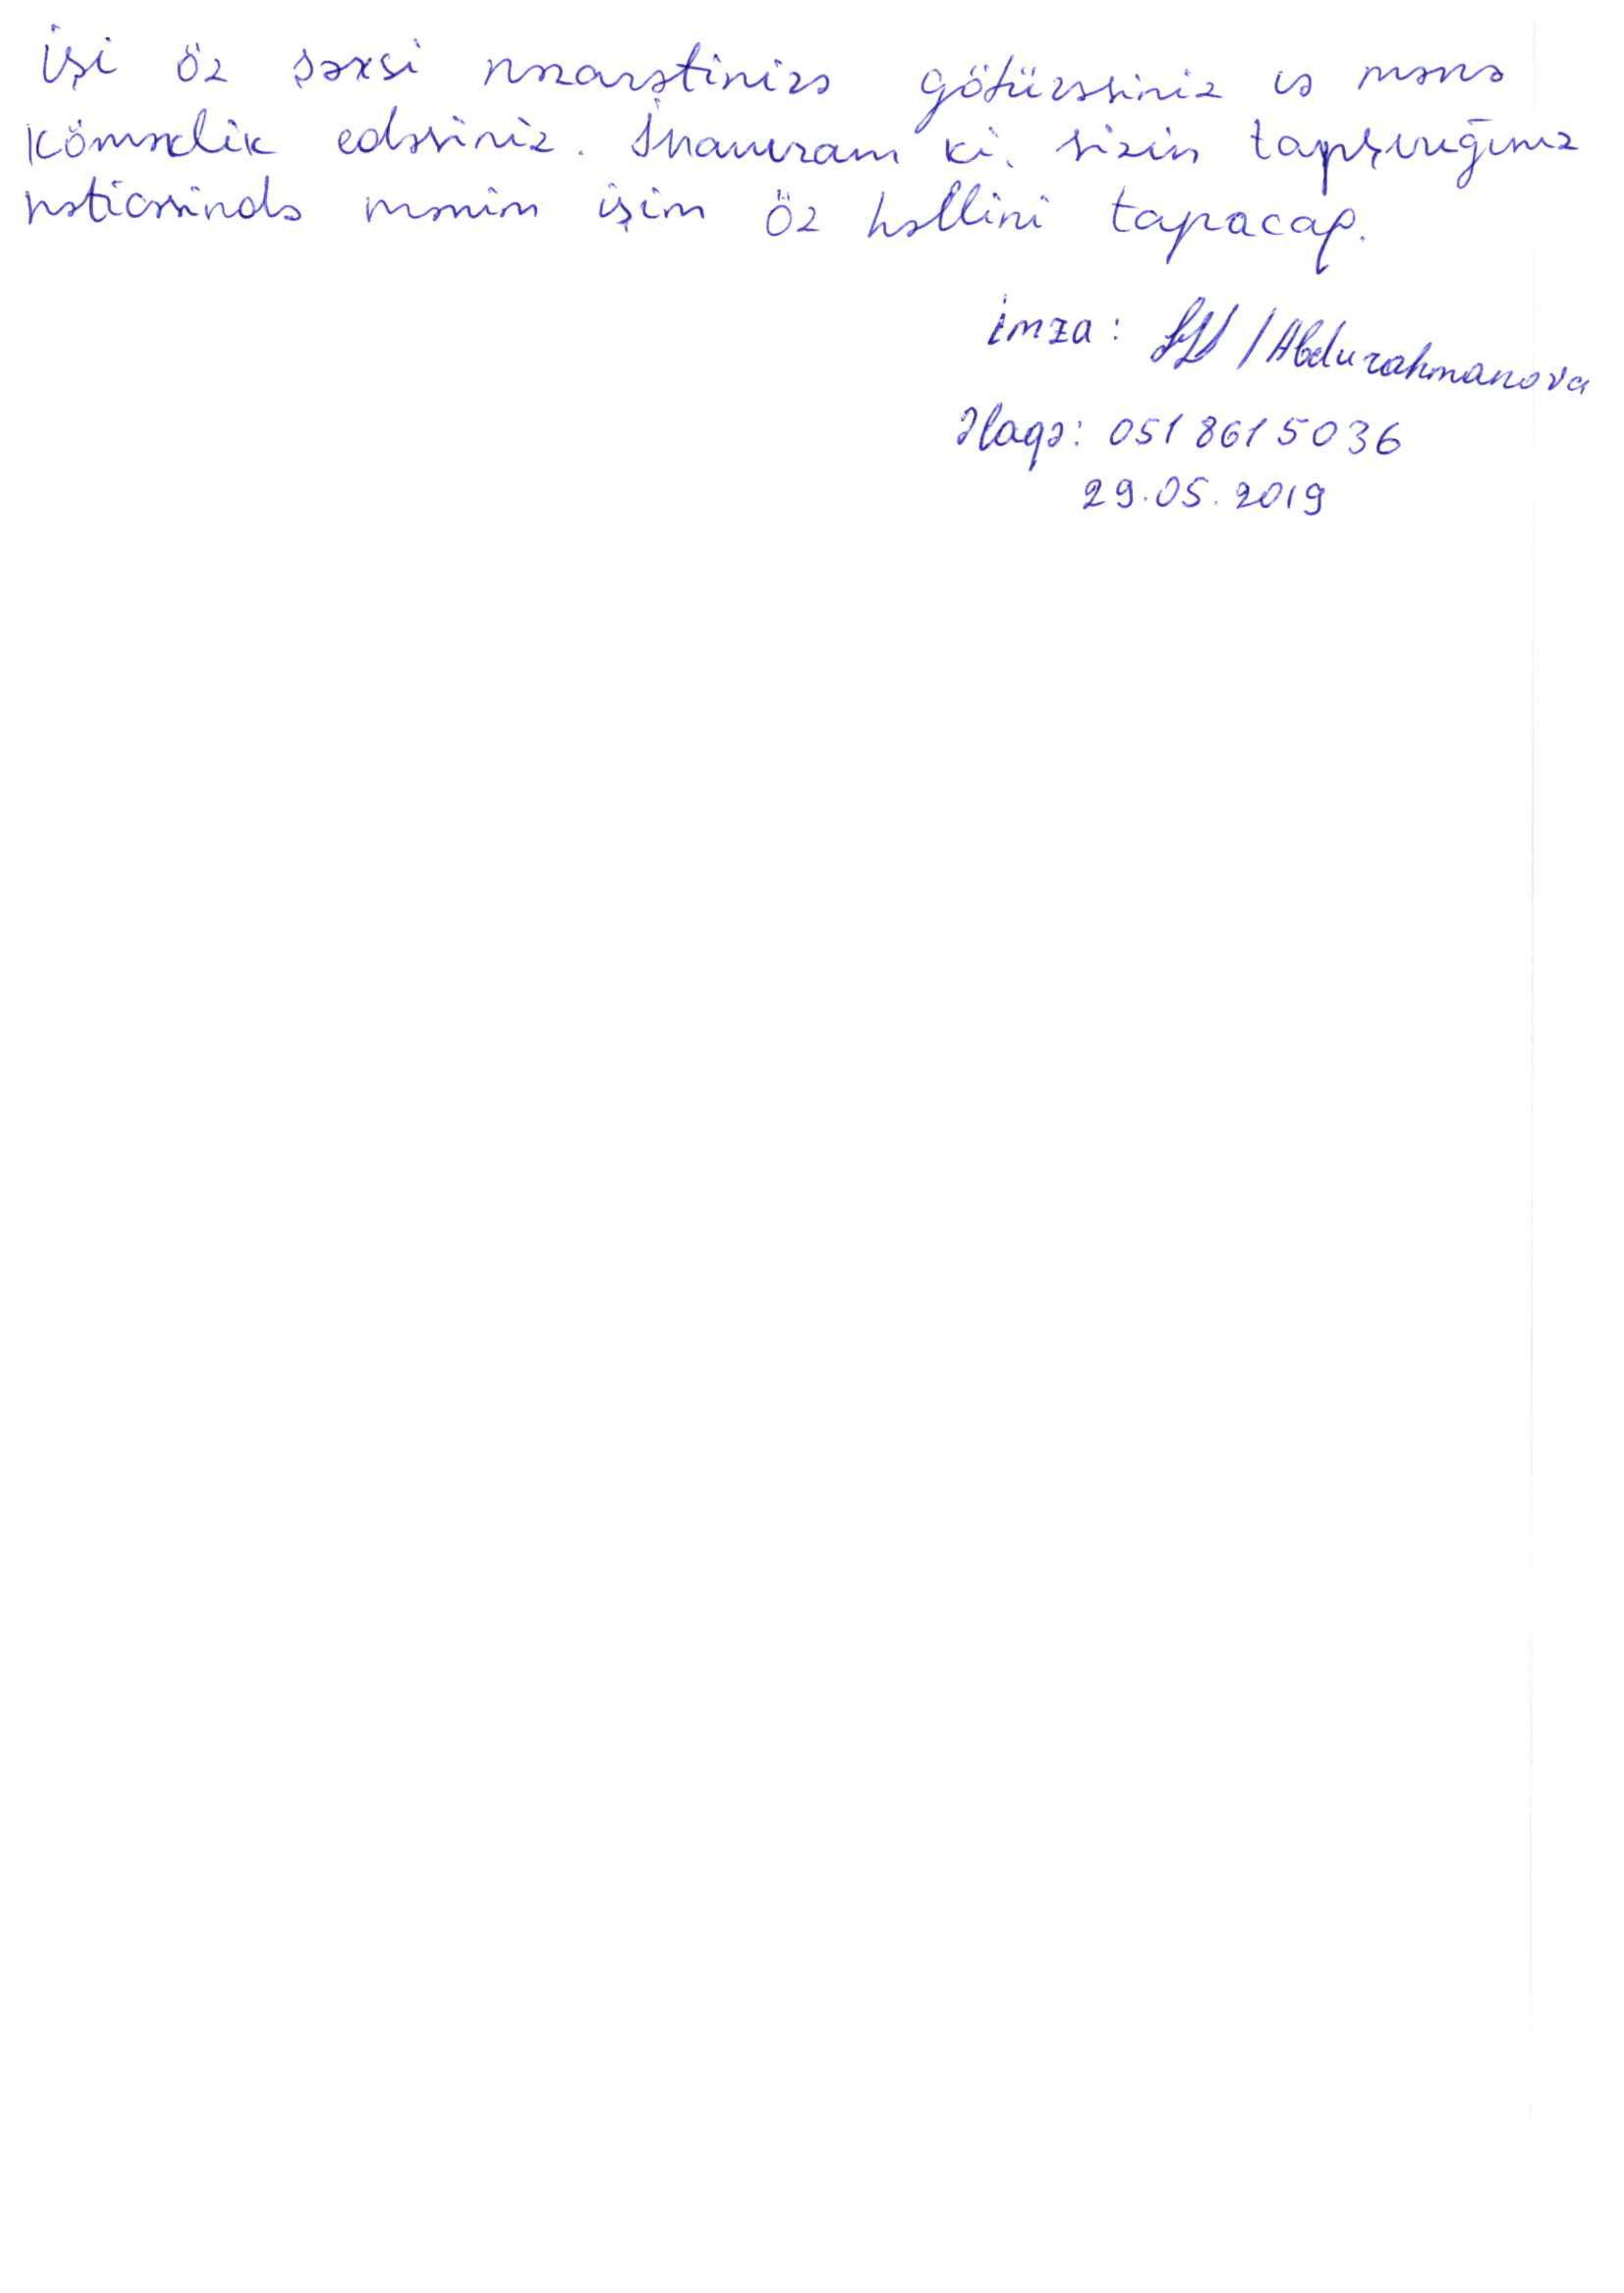 İşi öz şəxsi nəzarətinizə götürəsiniz və mənə
köməklik edəsiniz. İnanıram ki, sizin tapşırığınız
nəticəsində mənim işim öz həllini tapacaq.
İmza: /Abdurahmanova
Əlaqə: 051 861 50 36
29.05.2019